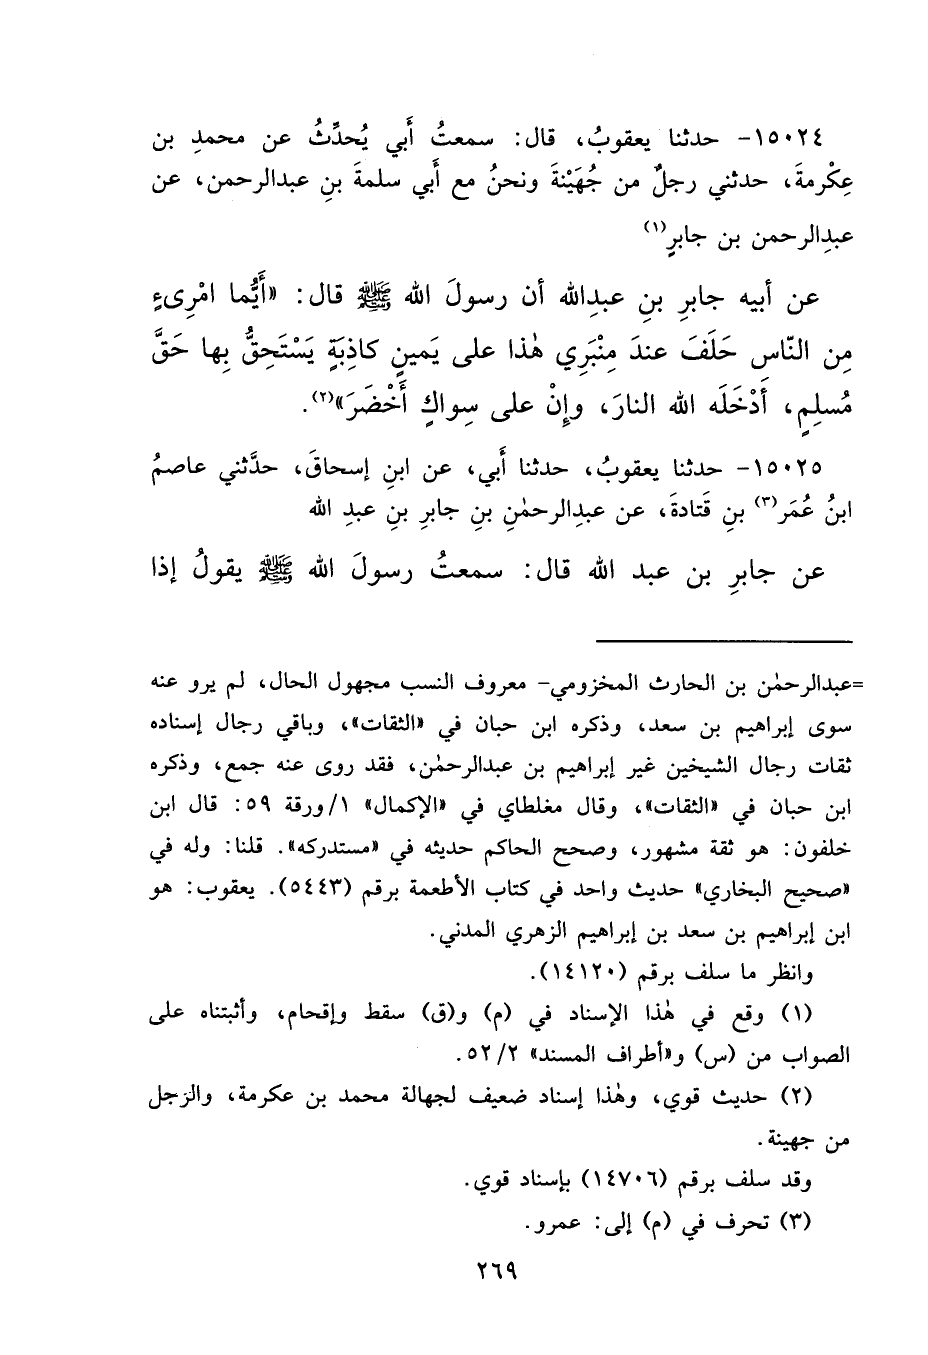 ١٥٠٢٤- حدثنا يعقوبُ، قال: سمعتُ أَبي يُحدِّثُ عن محمدِ بن
عِكْرمةَ، حدثني رجلٌ من جُهَيْنةَ ونحنُ مع أَبي سلمةَ بنِ عبدالرحمن، عن
عبدِالرحمن بن جابرٍ(١)
عن أبيه جابرِ بنِ عبدِالله أن رسولَ الله ﷺ قال: «أَيُّما امْرِىءٍ
مِن النّاسِ حَلَفَ عندَ مِنْبَرِي هٰذا على يَمينٍ كاذِبَةٍ يَسْتَحِقُّ بِها حَقَّ
مُسلِمٍ، أَدْخَلَه الله النارَ، وإِنْ على سِواكٍ أَخْضَرَ»(٢).
١٥٠٢٥- حدثنا يعقوبُ، حدثنا أَبي، عن ابنِ إسحاقَ، حدَّثني عاصمُ
ابنُ عُمَر(٣) بنِ قَتادةَ، عن عبدِالرحمٰنِ بنِ جابرِ بنِ عبدِ الله
عن جابرِ بن عبد الله قال: سمعتُ رسولَ الله ﷺ يقولُ إذا
=عبدالرحمٰن بن الحارث المخزومي- معروف النسب مجهول الحال، لم يرو عنه
سوى إبراهيم بن سعد، وذكره ابن حبان في «الثقات»، وباقي رجال إسناده
ثقات رجال الشيخين غير إبراهيم بن عبدالرحمٰن، فقد روى عنه جمع، وذكره
ابن حبان في «الثقات»، وقال مغلطاي في «الإكمال» ١/ورقة ٥٩: قال ابن
خلفون: هو ثقة مشهور، وصحح الحاكم حديثه في «مستدركه». قلنا: وله في
«صحيح البخاري» حديث واحد في كتاب الأطعمة برقم (٥٤٤٣). يعقوب: هو
ابن إبراهيم بن سعد بن إبراهيم الزهري المدني.
وانظر ما سلف برقم (١٤١٢٠).
(١) وقع في هٰذا الإسناد في (م) و(ق) سقط وإقحام، وأثبتناه على
الصواب من (س) و«أطراف المسند» ٥٢/٢.
(٢) حديث قوي، وهٰذا إسناد ضعيف لجهالة محمد بن عكرمة، والرجل
من جهينة.
وقد سلف برقم (١٤٧٠٦) بإسناد قوي.
(٣) تحرف في (م) إلى: عمرو.
٢٦٩